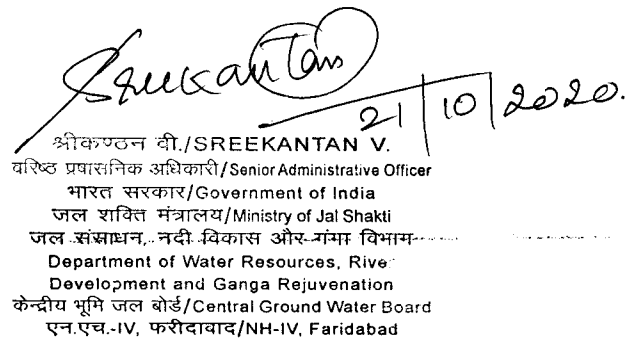 Sreekantan
21/10/2020.
श्रीकण्ठन वी./SREEKANTAN V.
वरिष्ठ प्रषासनिक अधिकारी/Senior Administrative Officer
भारत सरकार/Government of India
जल शक्ति मंत्रालय/Ministry of Jal Shakti
जल संसाधन, नदी विकास और गंगा विभाग
Department of Water Resources, Rive
Development and Ganga Rejuvenation
केन्द्रीय भूमि जल बोर्ड/Central Ground Water Board
एन.एच.-IV, फरीदावाद/NH-IV, Faridabad